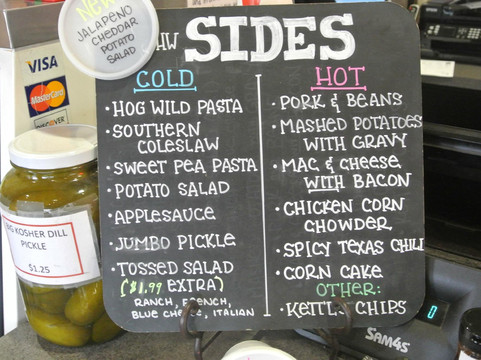 NEW
JALAPEÑO
CHEDDAR
POTATO
SALAD
HW SIDES
COLD
• HOG WILD PASTA
• SOUTHERN
COLESLAW
• SWEET PEA PASTA
• POTATO SALAD
• APPLESAUCE
• JUMBO PICKLE
• TOSSED SALAD
($1.99 EXTRA)
RANCH, FRENCH,
BLUE CHEESE, ITALIAN
HOT
• PORK & BEANS
• MASHED POTATOES
WITH GRAVY
• MAC & CHEESE
WITH BACON
• CHICKEN CORN
CHOWDER
• SPICY TEXAS CHILI
• CORN CAKE
OTHER:
• KETTLE CHIPS
VISA
MasterCard
DISCOVER
KOSHER DILL
PICKLE
$1.25
0
SAM4S